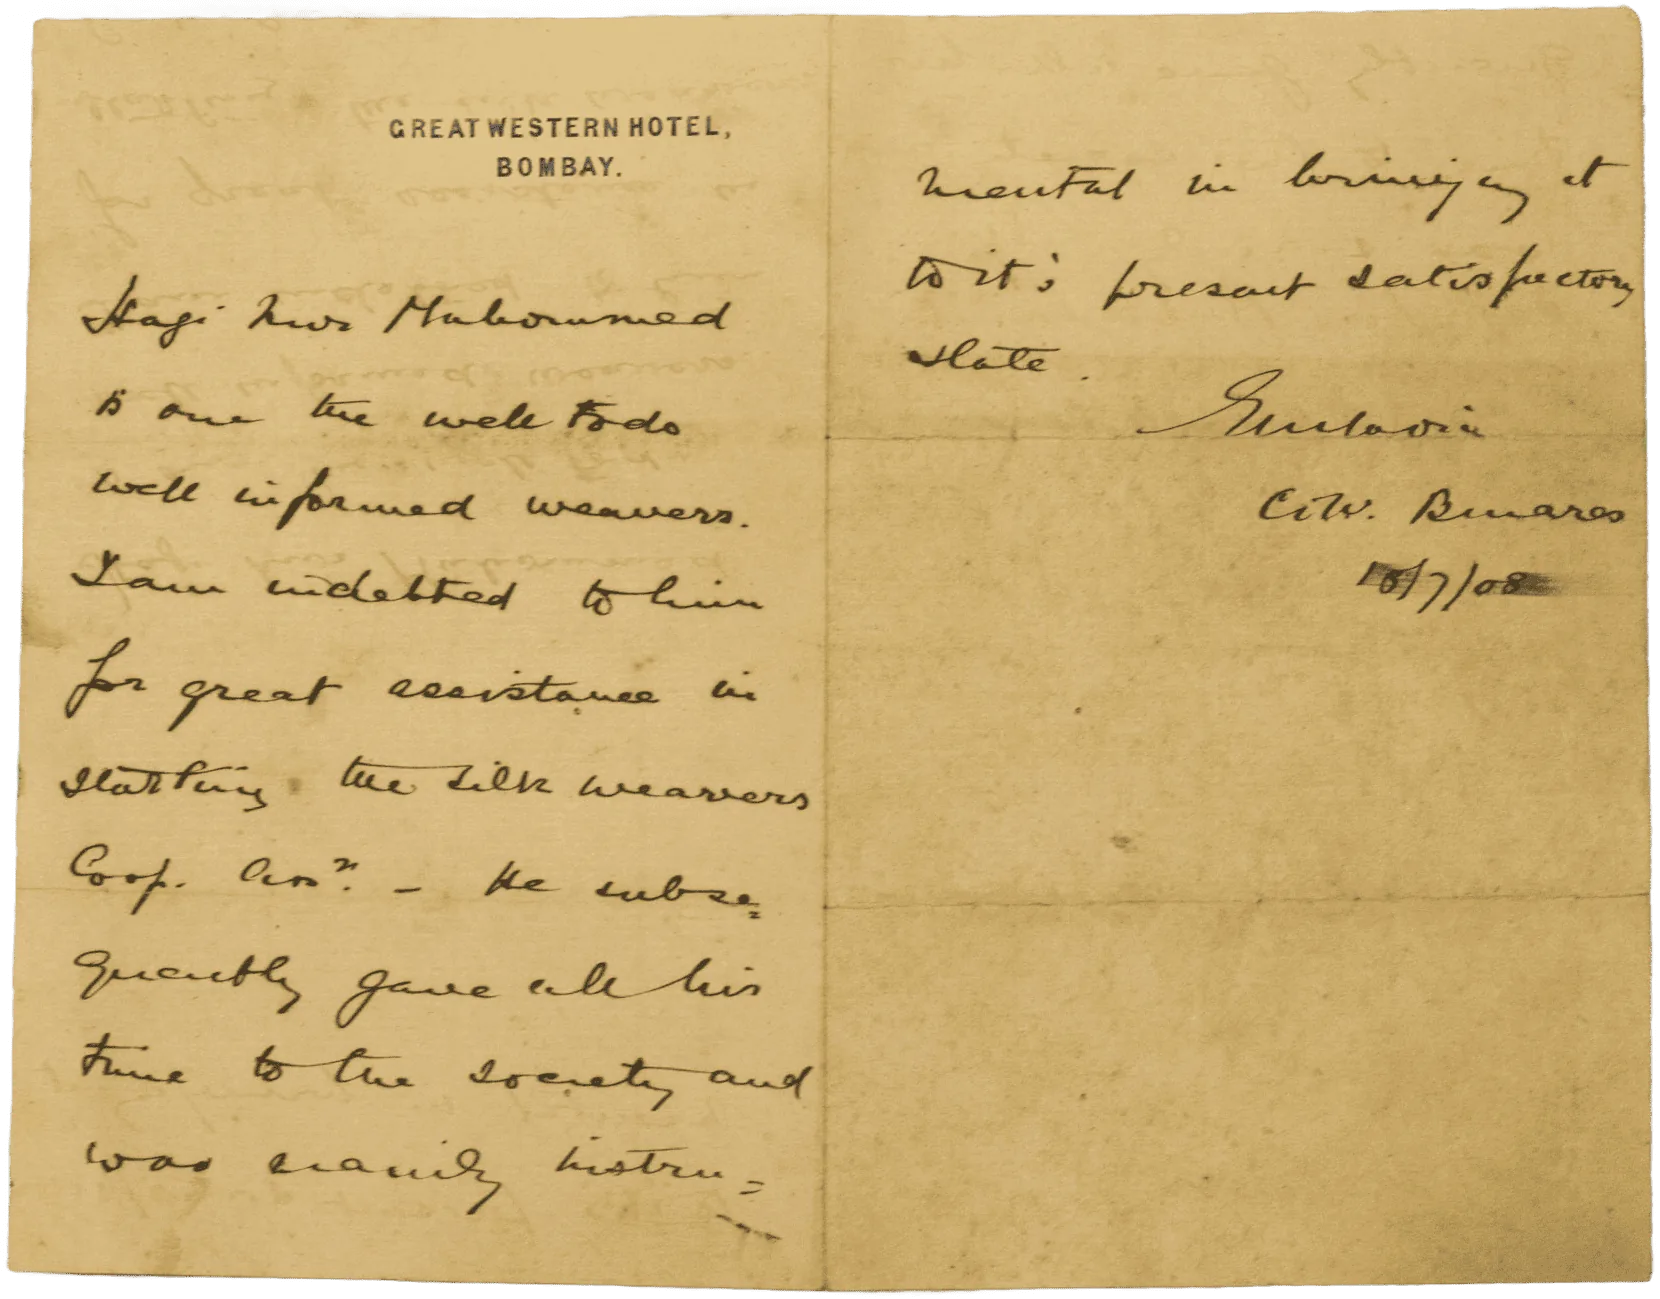 GREAT WESTERN HOTEL,
BOMBAY.
Hagi Nur Muhommed
is one the well to do
well informed weavers.
I am indebted to him
for great assistance in
starting the silk weavers
Coop. Assn. – He subse=
quently gave all his
time to the society and
was mainly instru=
mental in bringing it
to it's present satisfactory
state.
Benares
10/7/08